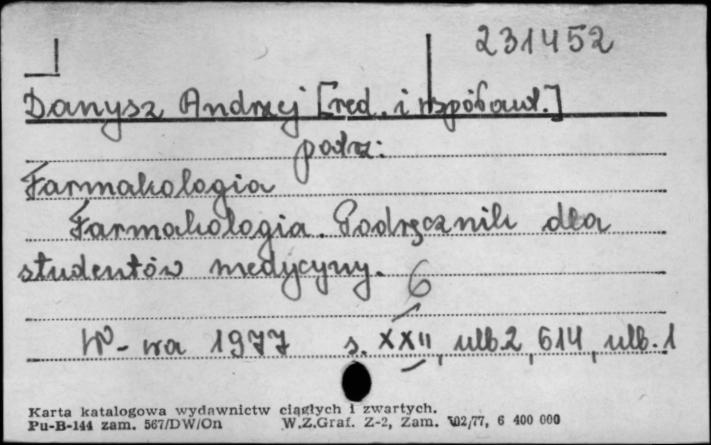 231452
Danysz Andrzej [red. i współaut.]
patrz:
Farmakologia
Farmakologia. Podręcznik dla
studentów medycyny.
6
W-wa 1977 s. XXII, nlb. 2, 614, nlb. 1
Karta katalogowa wydawnictw ciągłych i zwartych.
Pu-B-144 zam. 567/DW/On W.Z.Graf. Z-2, Zam. 702/77, 6 400 000